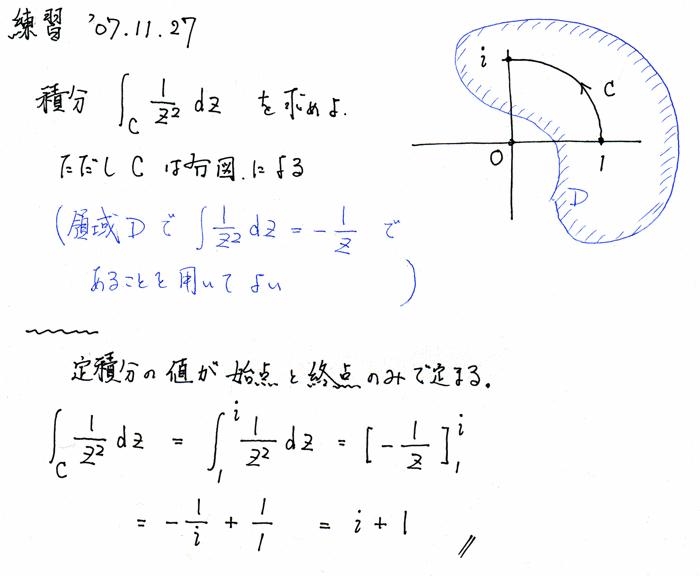 練習 '07.11.27
積分 ∫_C 1/z² dz を求めよ.
ただし C は右図.による
(領域 D で ∫ 1/z² dz = - 1/z で
あることを用いてよい)
i
C
0
1
D
定積分の値が始点と終点のみで定まる.
∫_C 1/z² dz = ∫_1^i 1/z² dz = [- 1/z]_1^i
= - 1/i + 1/1 = i + 1 //